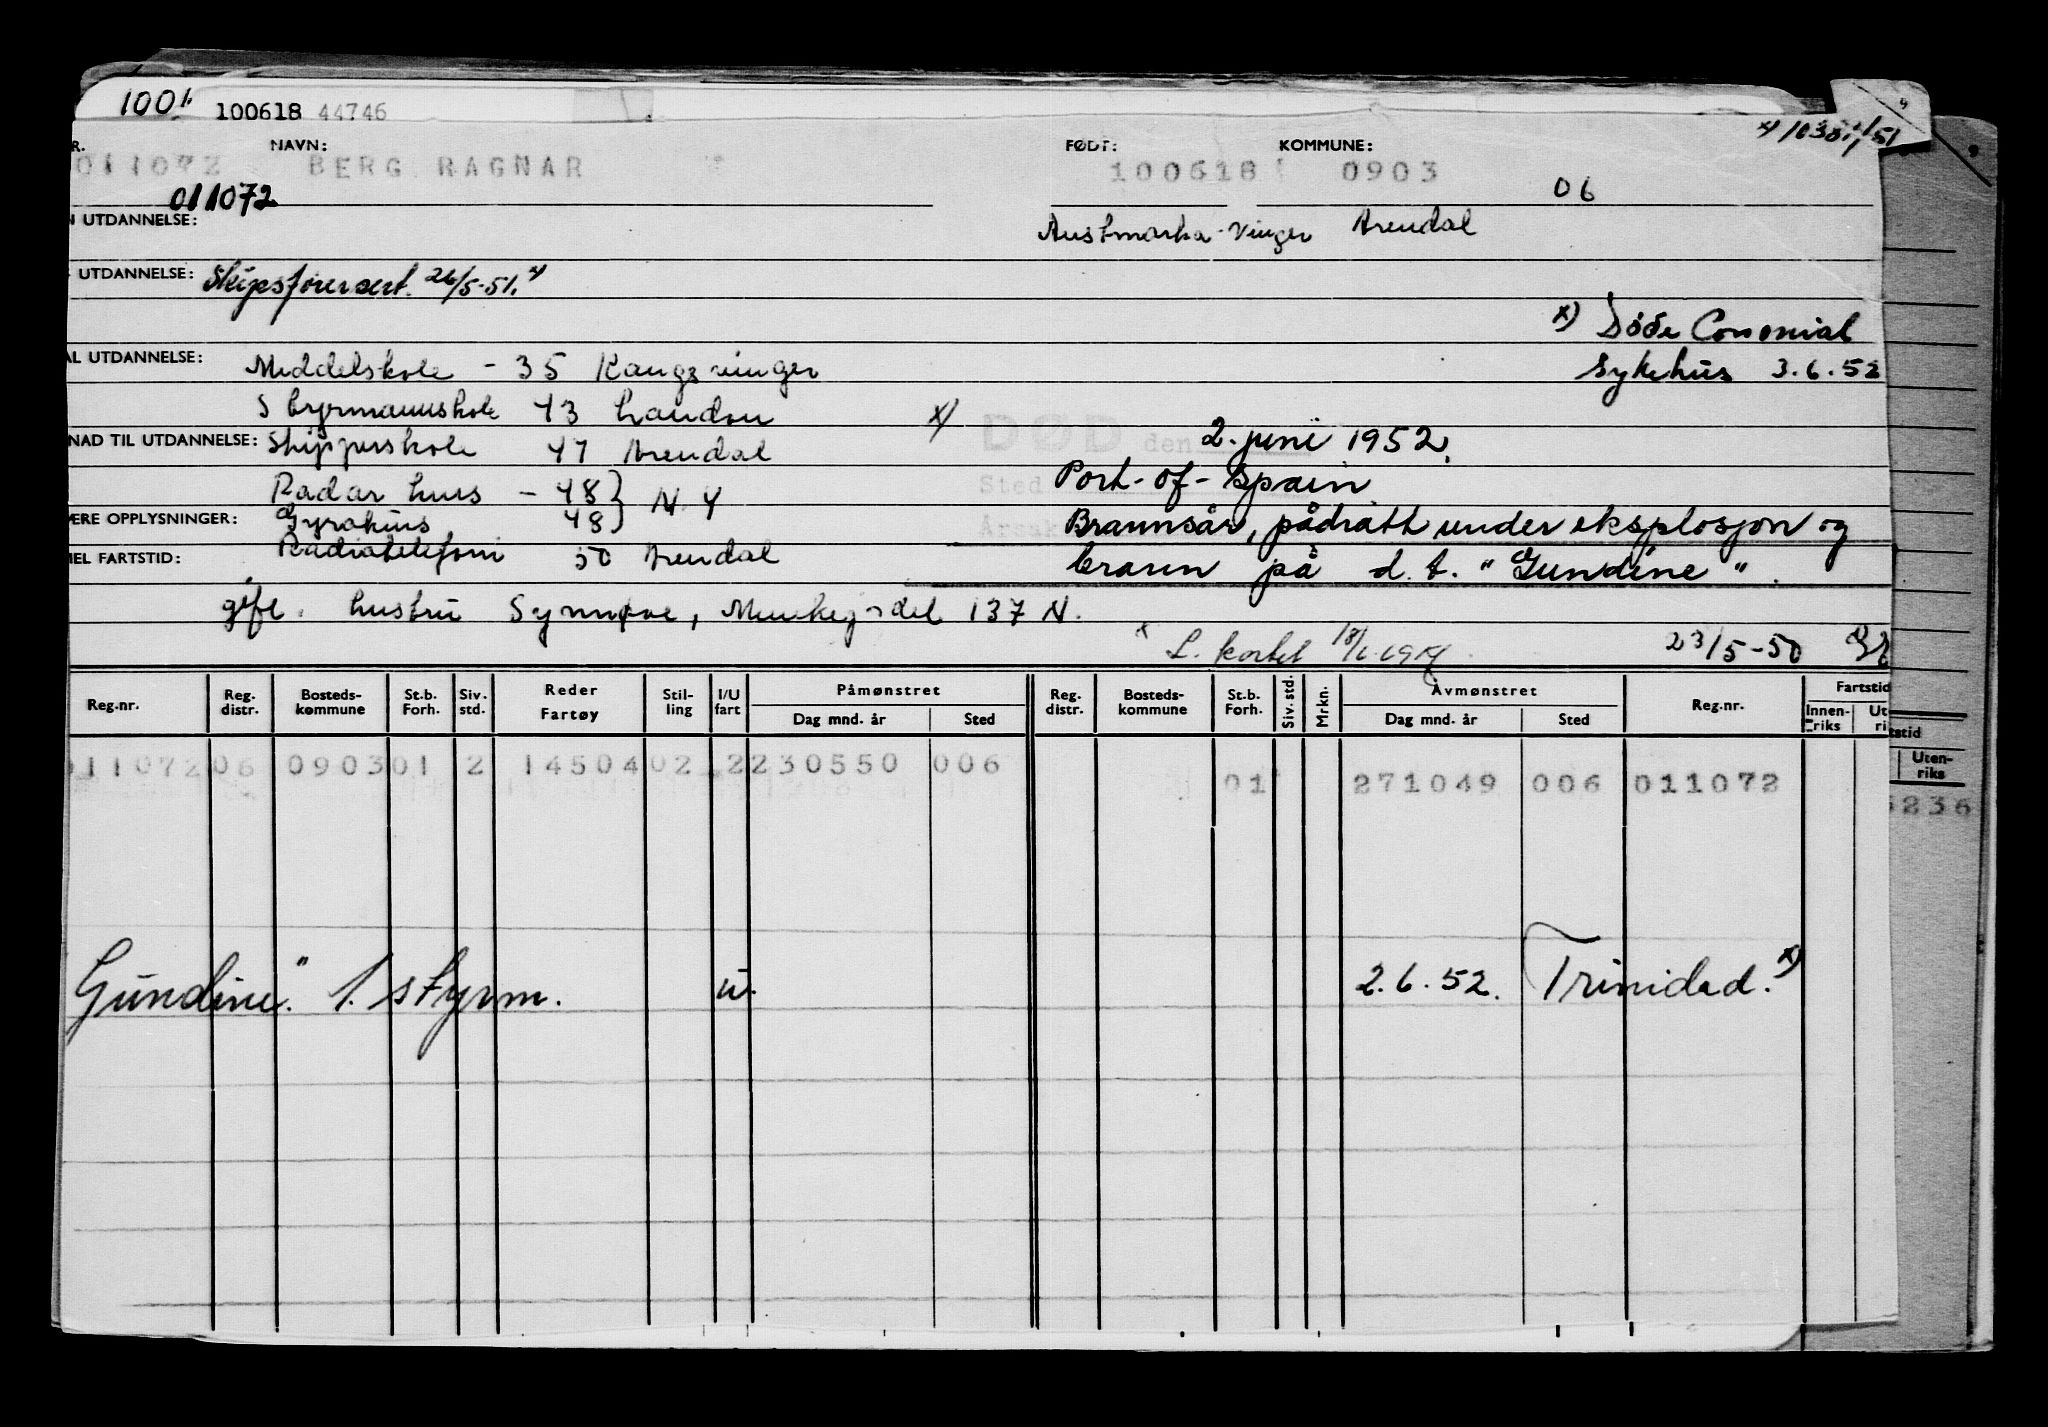 100618 44746
NAVN: FØDT: KOMMUNE:
011072 BERG RAGNAR 100618 0903
011072 06
UTDANNELSE: Austmarka-Vinger Arendal
UTDANNELSE: Skipsførersert. 26/5-51. x)
x) Døde Colonial
AL UTDANNELSE: Middelskole - 35 Kongsvinger Sykehus 3.6.52
Styrmannskole 43 London
x) DØD den 2. juni 1952.
NAD TIL UTDANNELSE: Skipperskole 47 Arendal
Sted Port-of-Spain
Radar kurs - 48 } N.Y
ÆRE OPPLYSNINGER: Gyrokurs 48
Årsak Brannsår, pådratt under eksplosjon og
EL FARTSTID: Radiotelefoni 50 Arendal
brann på d.t. "Gundine".
gift. hustru Synnøve, 137 N.
23/5-50
Reg.nr. Reg. distr. Bosteds- kommune St.b. Forh. Siv. std. Reder Fartøy Stil- ling I/U fart Påmønstret Dag mnd. år Sted Reg. distr. Bosteds- kommune St.b. Forh. Siv. std. Mrkn. Avmønstret Dag mnd. år Sted Reg.nr. Fartstid Innen- riks
Uten- riks
011072 06 0903 01 2 14504 02 2 230550 006
01 271049 006 011072
5236
Gundine." 1. styrm. u. 2.6.52. Trinidad. x)